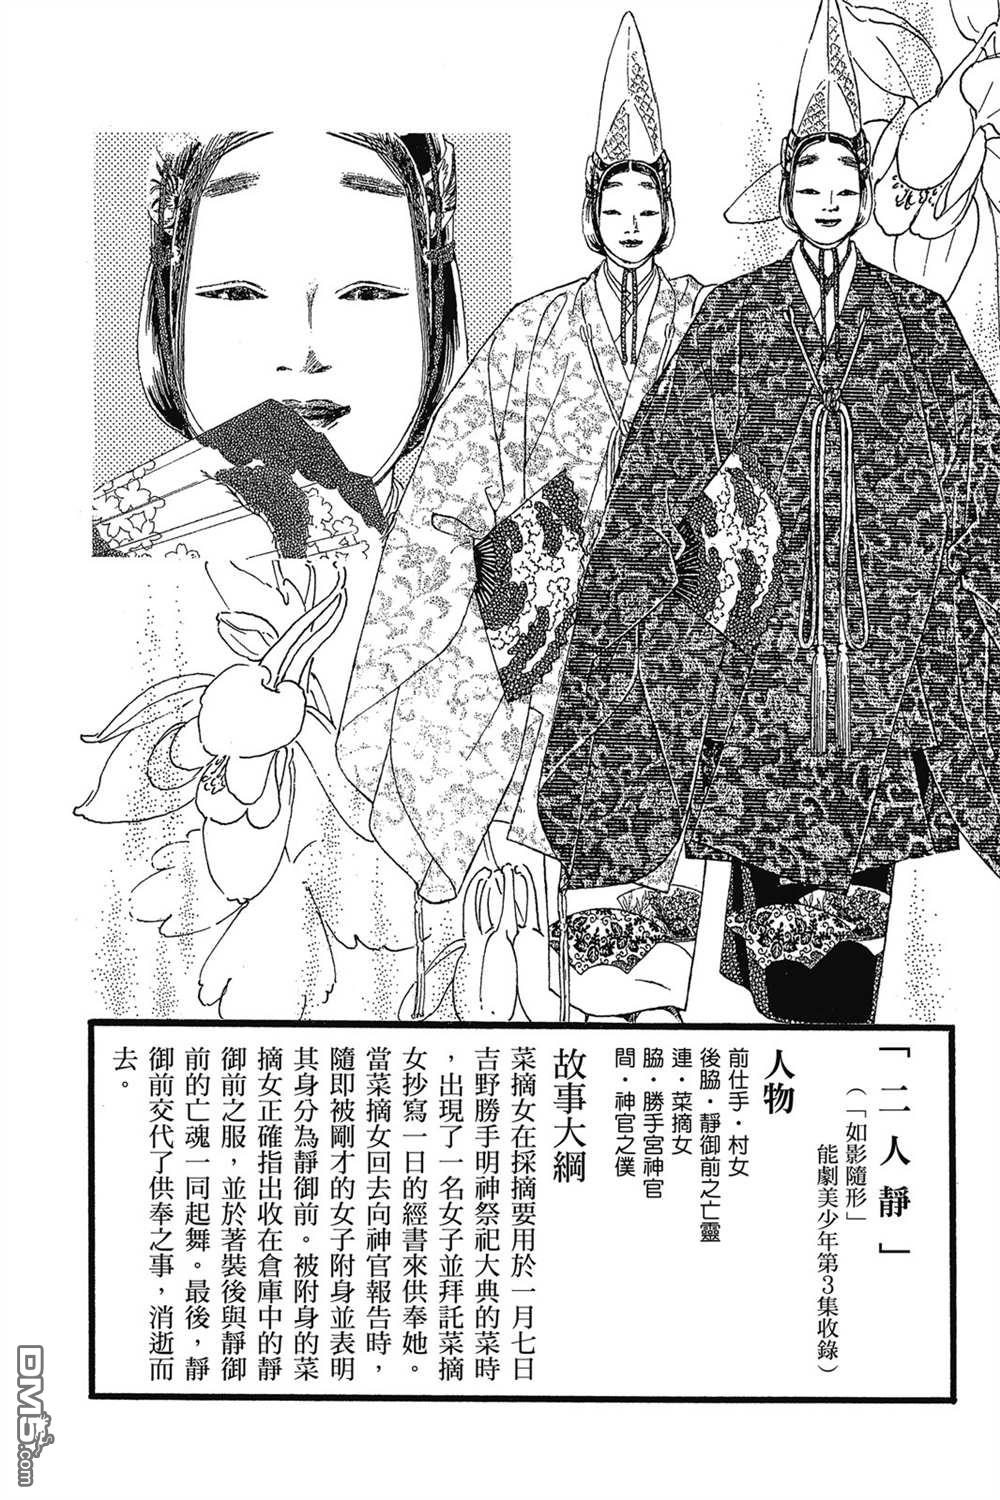 「二人靜」
（「如影隨形」
能劇美少年第3集收錄）
人物
前仕手・村女
後脇・靜御前之亡靈
連・菜摘女
脇・勝手宮神官
間・神官之僕
故事大綱
菜摘女在採摘要用於一月七日
吉野勝手明神祭祀大典的菜時
，出現了一名女子並拜託菜摘
女抄寫一日的經書來供奉她。
當菜摘女回去向神官報告時，
隨即被剛才的女子附身並表明
其身分為靜御前。被附身的菜
摘女正確指出收在倉庫中的靜
御前之服，並於著裝後與靜御
前的亡魂一同起舞。最後，靜
御前交代了供奉之事，消逝而
去。
DM5.com